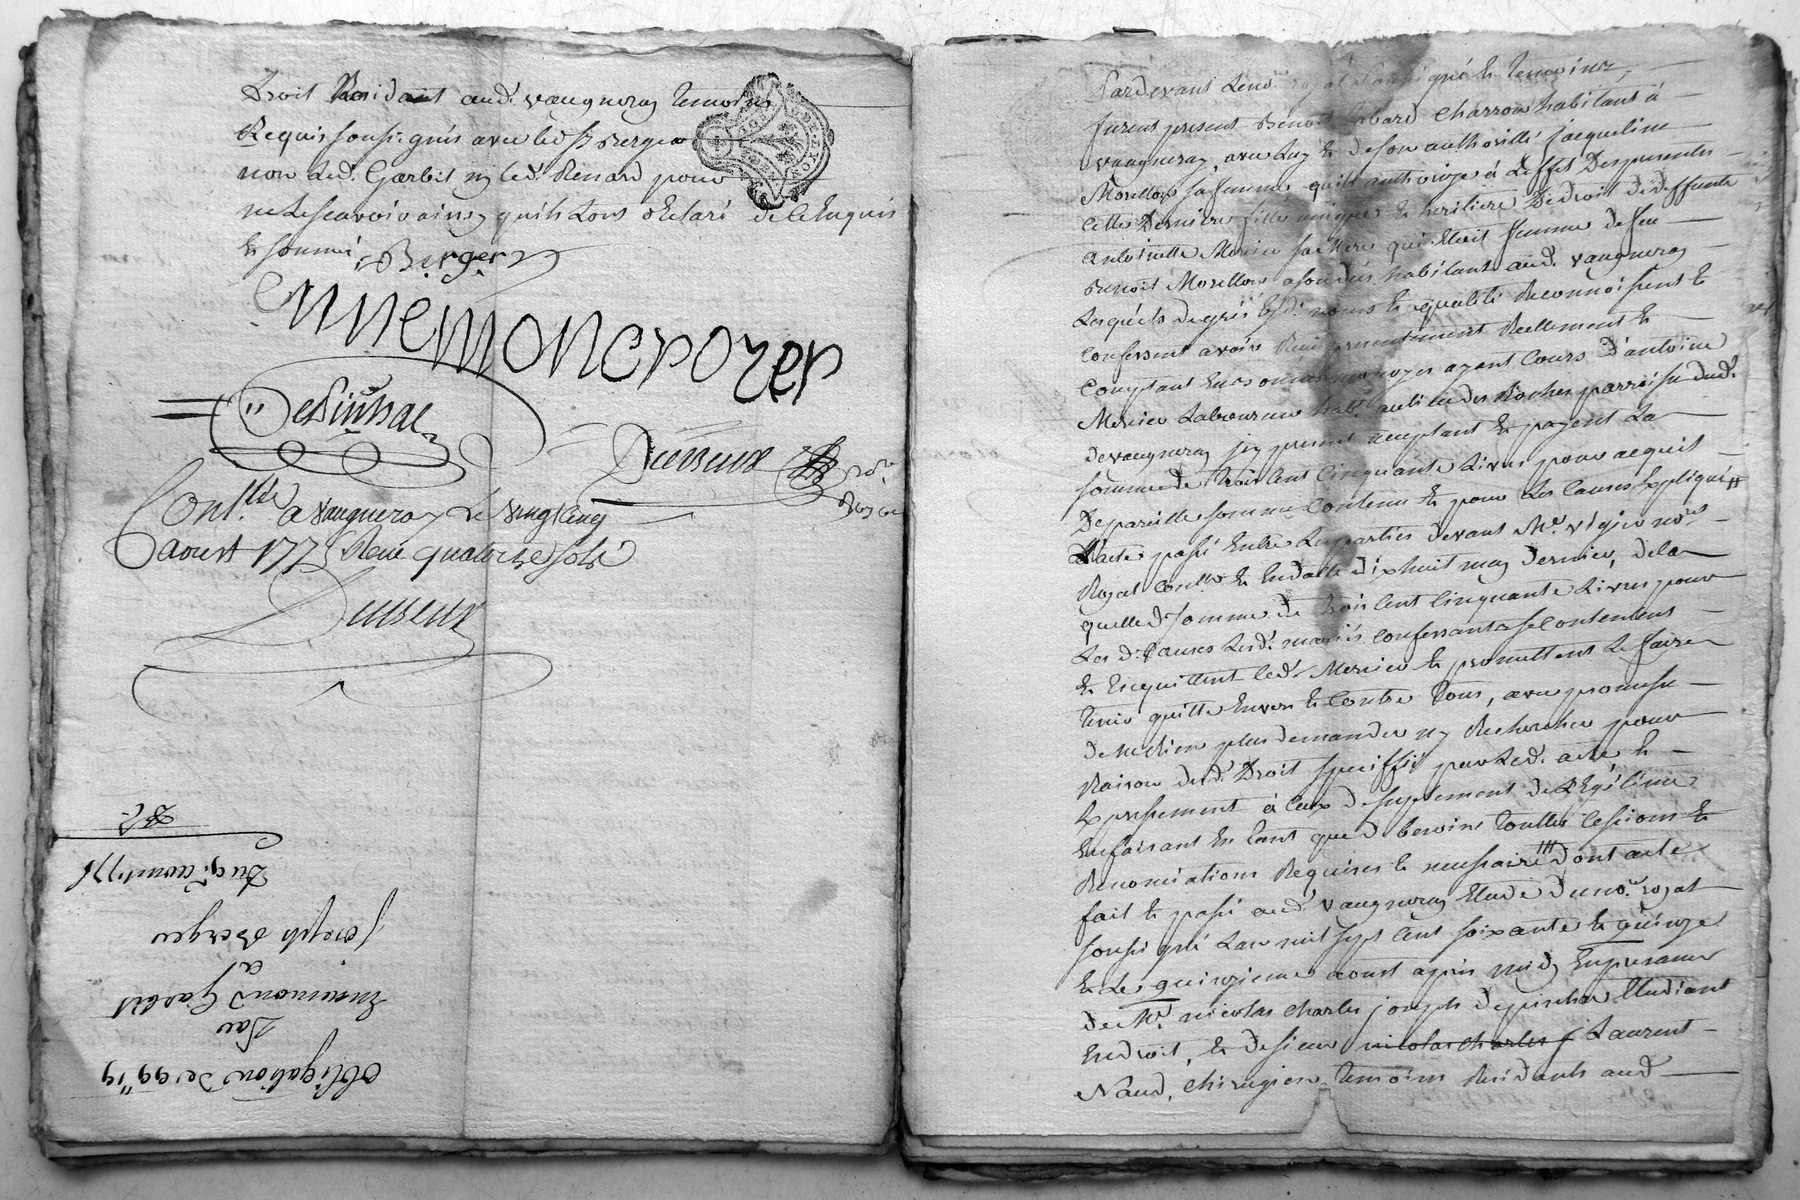 Droit Residant aud. vaugneray temoins
Requis soussignés avec led. Sr Berger
non led. Garbit ny led. Renard pour
ne le scavoir ainsy qu'ils l'ont declaré de ce enquis
et sommé, Berger
ennemoncrozer
Depinhac
Dusseux
Contllé a Vaugneray le vingt cinq
aoust 1775 Reçu quatorze sols
Dusseux
obligation de 99" 19
Par
Ennemond Garbit
a
joseph Berger
Du 9e aoust 177
Pardevant le no. royal soussigné et temoins,
furent present Benoit abard charron habitant à
vaugneray, avec luy et de son authorité jacqueline
Morellon sa femme qu'il authorize à l'effet des presentes
cette Derniere fille unique et heritiere De droit de deffunte
antoinette Mercier sa Mere qui étoit femme de feu
Benoit Morellon a son deces habitant aud. vaugneray
Lesquels de gré esd. noms et qualité Reconnoissent et
confessent avoir Reçu presentement Reellement et
comptant en sommes monoyes ayant cours d'antoine
Mercier Laboureur habt. au lieu des Roches parroisse dud.
de vaugneray icy present acceptant et payant La
somme de trois cent cinquante Livres pour acquit
De pareille somme contenue et pour les causes Expliquées
L'acte passé Entre les parties devant Me. vezier nore.
Royal le en datte dixhuit may dernier, de la
quelle d. somme de trois cent cinquante Livres pour
Les d. causes Lesd. mariés confessants se contentent
et En quittent led. Mercier et promettent Le faire
tenir quitte Envers et contre tous, avec promesse
de ne Rien plus demander ny Rechercher pour
Raison dud. Droit speciffié par Led. acte et
Expressement à ceux de supplement de Legitime
En faisant En tant que de besoins toutes cessions et
Renonciations Requises et necessaires dont acte
fait et passé aud. vaugneray Etude du no. royal
soussigné L'an mil sept cent soixante et quinze
et Le quinzieme aoust après midy En presence
de Mr. nicolas charles joseph Depinhac Etudiant
En droit, et de sieur nicolas charles j Laurent
Naud, chirurgien temoins Residants aud.